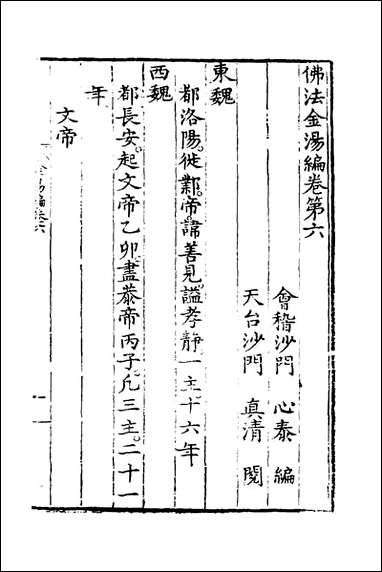 佛法金湯編卷第六
會稽沙門 心泰 編
天台沙門 真清 閱
東魏
都洛陽徙鄴帝諱善見謚孝靜一主十六年
西魏
都長安起文帝乙卯盡恭帝丙子凡三主二十一
年
文帝